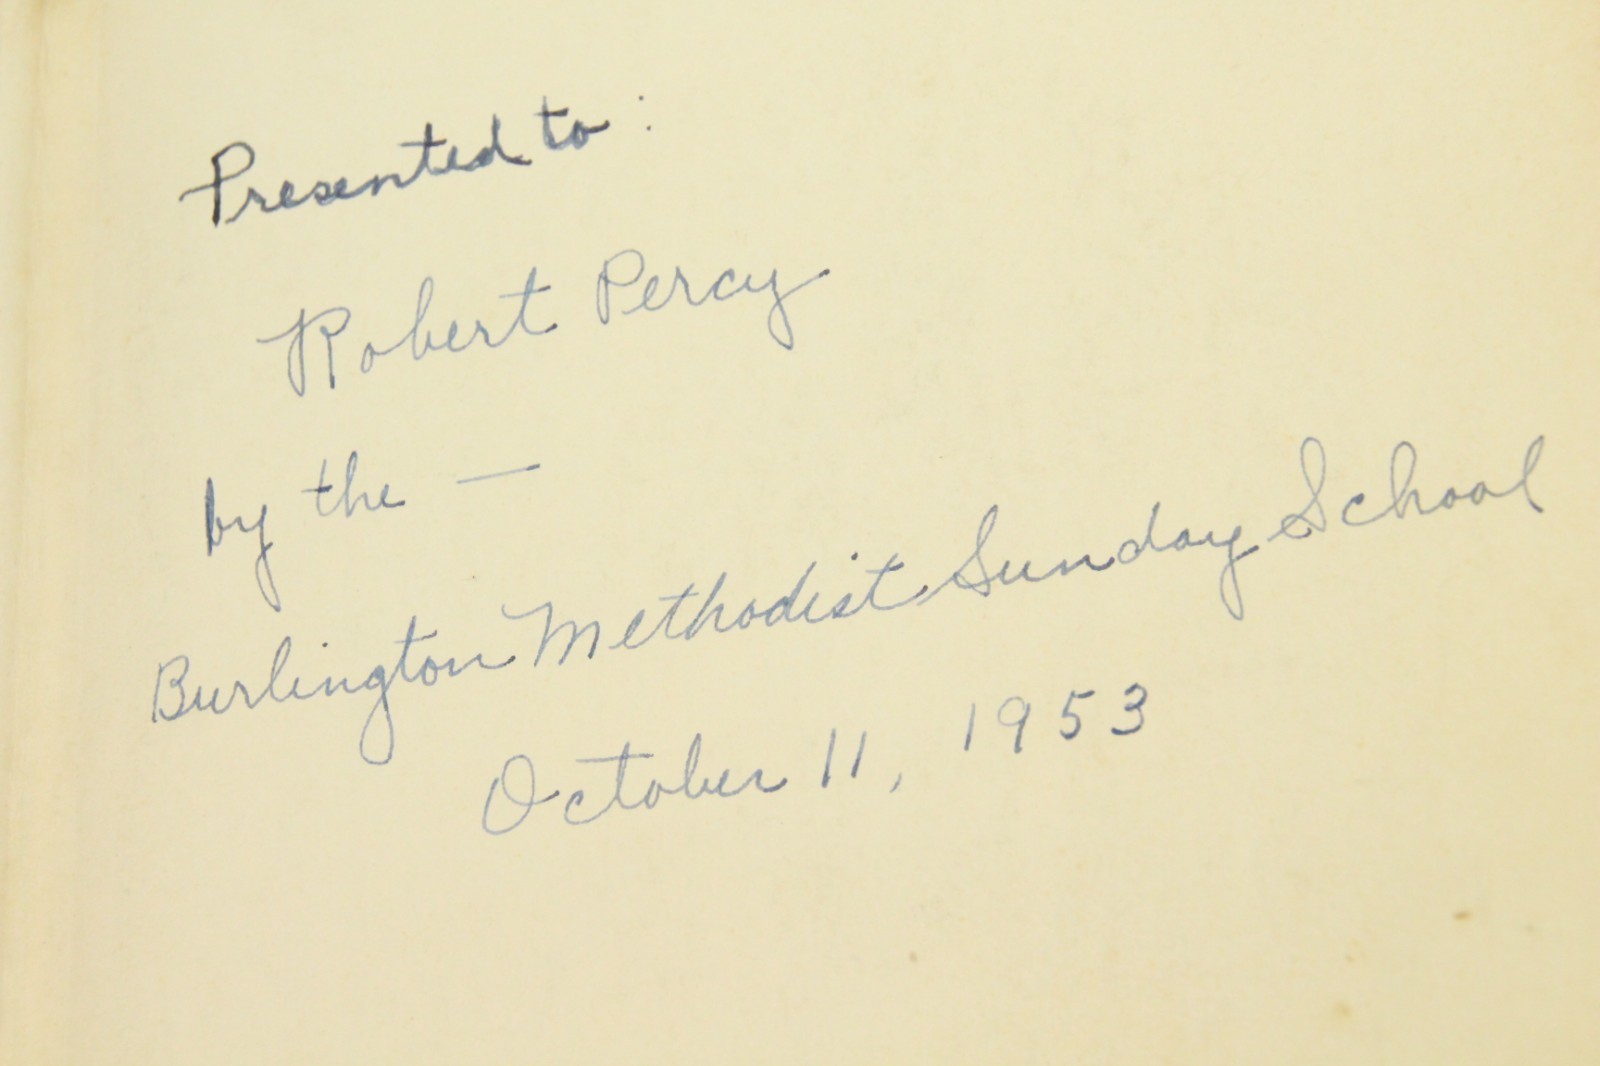 Presented to:
Robert Percy
by the —
Burlington Methodist Sunday School
October 11, 1953